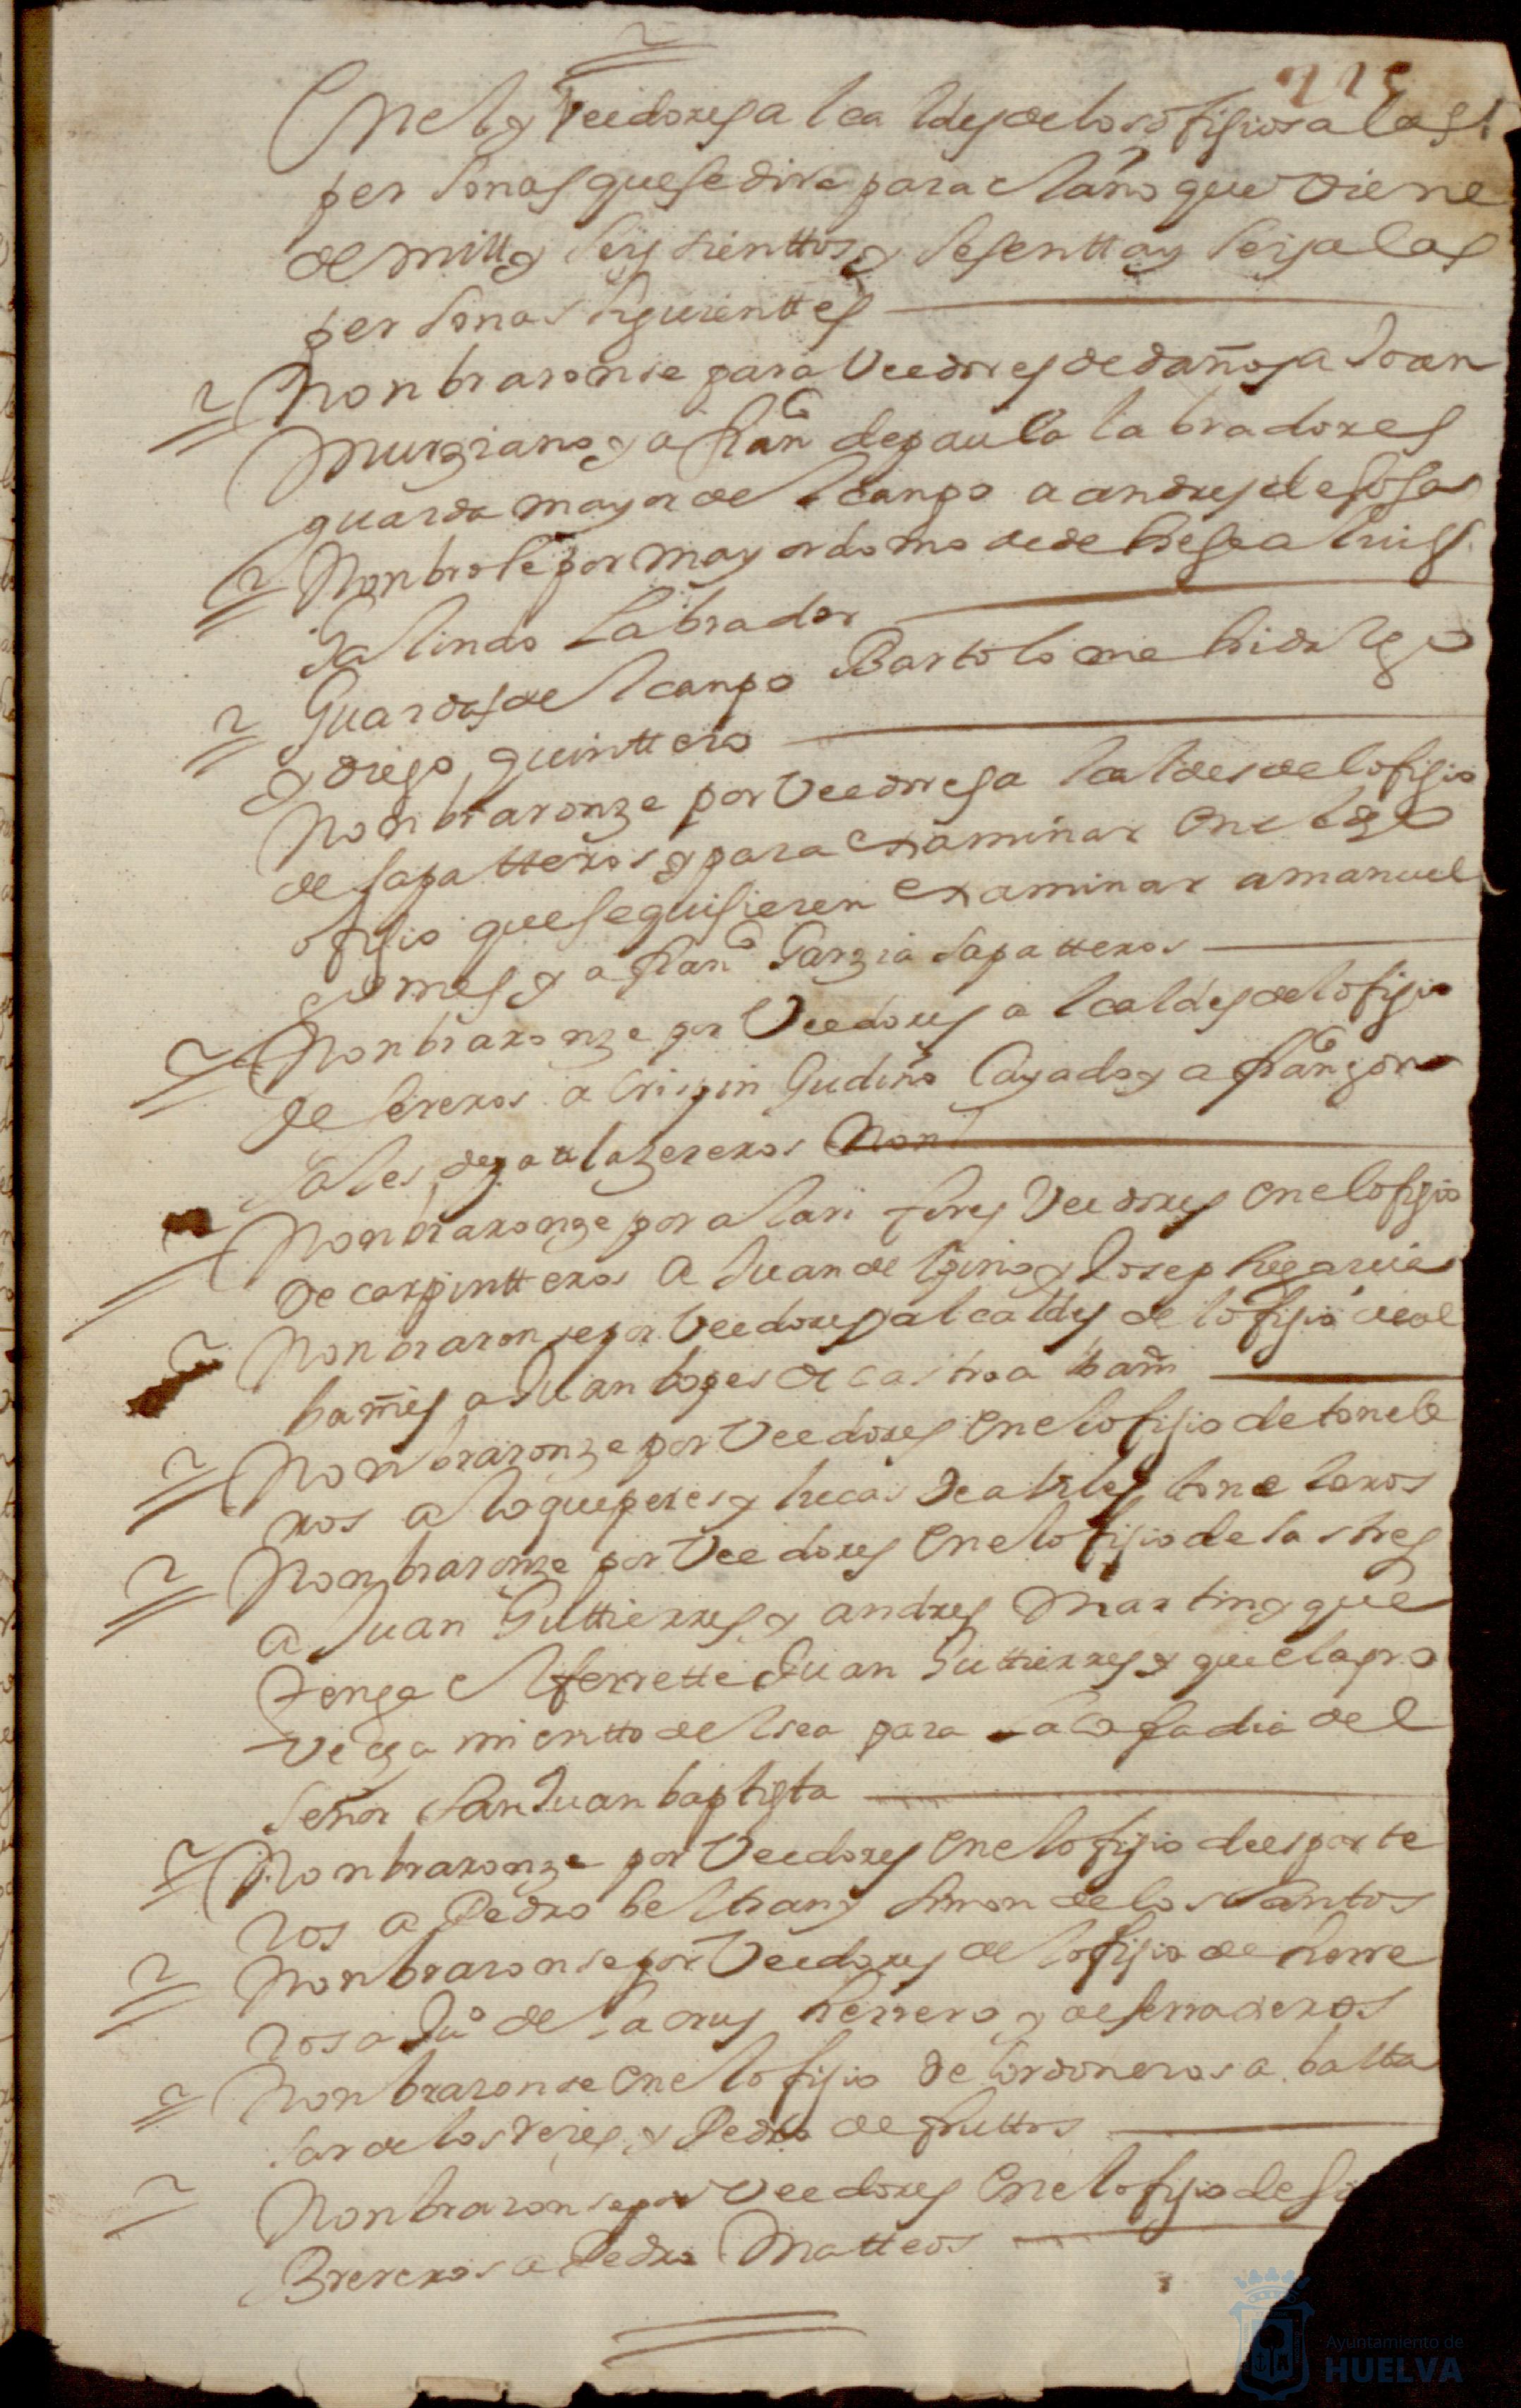 y Veedores alcaldes de los ofisios a las
personas que se dira para el año que viene
de mill y seyssienttos y sesentta y seys a las
personas siguienttes
Nonbraronse para Veedores de daños a Joan
Murziano y a Franco de paula labradores
guarda mayor del canpo a andres de sosa
Nonbrose por mayordomo de dehesa a luis
Galindo Labrador
Guardas del canpo Bartolome hidalgo
y diego quinttero
Nonbraronze por Veedores alcaldes del ofisio
de sapatteros y para examinar en el
ofisio que se quisieren examinar a manuel
gomes y a Franco Garzia sapatteros
Nonbraronze por Veedores alcaldes del ofisio
de a Crispin Gudiño Cayado y a Franco gon
sales
Nonbraronze por alarifes Veedores en el ofisio
de carpintteros a Juan de y Joseph
Nonbraronse por Veedores alcaldes del ofisio de al
bañies a Juan lopes de castro
Nonbraronze por Veedores en el ofisio de tonele
ros a roque peres y lucas de toneleros
Nonbraronze por Veedores en el ofisio de sastres
a Juan Guttierres y andres Martin y que
tenga el ferrette Juan Guttierres y que el apro
vechamientto del sea para la cofadia del
Señor San Juan baptista
Nonbraronze por Veedores en el ofisio de esparte
ros a Pedro beltran y simon de los santos
Nonbraronse por Veedores del ofisio de herre
ros a Juo de la crus herrero y de serraderos
Nonbraronse en el ofisio de Cordoneros a balta
sar de los reies y Pedro de fruttos
Nonbraronse por Veedores en el ofisio de so
brereros a Pedro Matteos
Ayuntamiento de
HUELVA